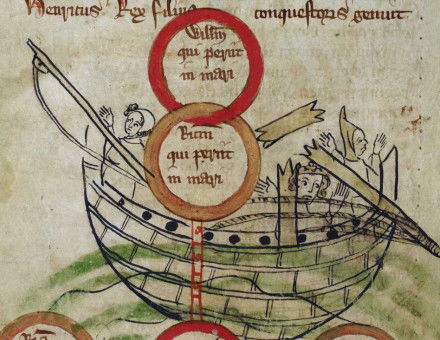 Henricus Rex filius conquestoris genuit
Willm
qui periit
in mari
Ricm
qui periit
in mari
Ric